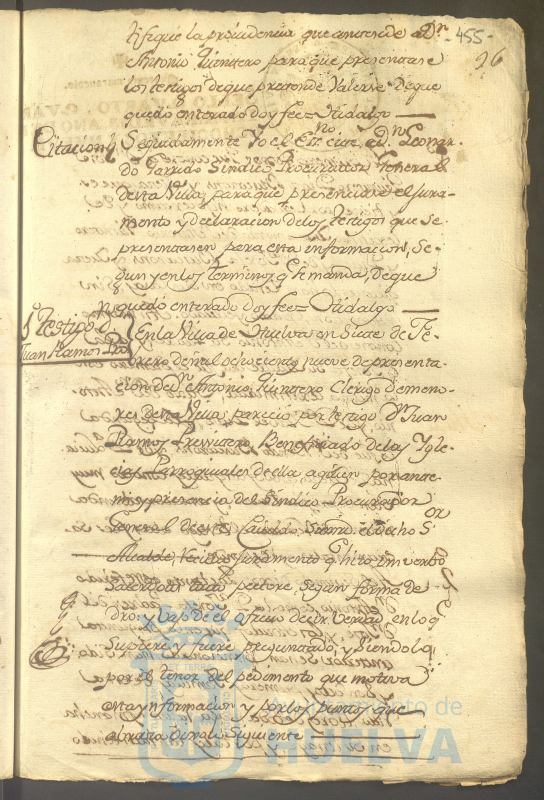 tifiqué la providencia que antecede a Dn
-455-
96
Antonio Quintero para que presentase
los testigos de que pretende Valerse. De que
quedó enterado doy fee = Hidalgo
Citacion
Seguidamente Yo el Essno cite a Dn Leonar-
do Garrido Sindico Procurador General
desta Villa, para que presenciare el jura-
mento y declaracion de los testigos que se
presentasen para esta informacion, Se-
gun y en los terminos q se manda, De que
quedó enterado doy fee = Hidalgo
1º Testigo D
Juan Ramos Pbo
En la Villa de Huelva en Siete de Fe-
brero de mil ochociento nueve de presenta-
cion de Dn Antonio Quintero Clerigo de meno-
res desta Villa, parecio por testigo Dn Juan
Ramos Presvitero Beneficiado de las Ygle-
cias Parroquiales de ella, a quien por ante
mi y presencia del Sindico Procurador
General de este Comun, el dicho Sor
Alcalde, recivio juramento q hizo in verbo
Sacerdotis tacto pectore, segun forma de
dro: y vajo de el ofrecio decir verdad en lo q
Supiere y fuere preguntado, y Siendolo
por el tenor del pedimento que motiva
esta ynformacion y por los puntos que
abraza dixo lo Siguiente
Ayuntamiento de
HUELVA